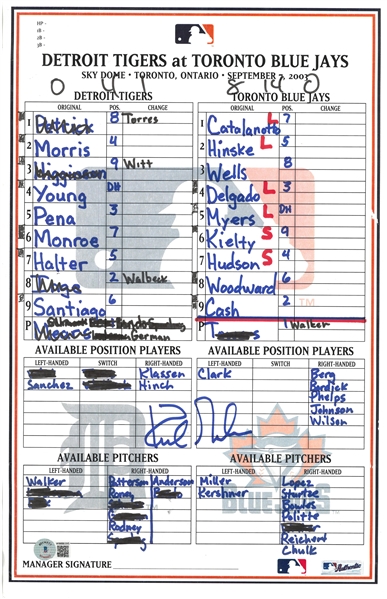 HP -
1B -
2B -
3B -
DETROIT TIGERS at TORONTO BLUE JAYS
SKY DOME • TORONTO, ONTARIO • SEPTEMBER 7, 2003
0 4 1 8 14 0
DETROIT TIGERS TORONTO BLUE JAYS
ORIGINAL POS. CHANGE ORIGINAL POS. CHANGE
1 8 Torres 1 Catalanotto L 7
2 Morris 4 2 Hinske L 5
3 Higginson 9 Witt 3 Wells 8
4 Young DH 4 Delgado L 3
5 Pena 3 5 Myers L DH
6 Monroe 7 6 Kielty S 9
7 Halter 5 7 Hudson S 4
8 Inge 2 Walbeck 8 Woodward 6
9 Santiago 6 9 Cash 2
P German P 1 Walker
AVAILABLE POSITION PLAYERS AVAILABLE POSITION PLAYERS
LEFT-HANDED SWITCH RIGHT-HANDED LEFT-HANDED SWITCH RIGHT-HANDED
Klassen Clark Berg
Sanchez Hinch Bordick
Phelps
Johnson
Wilson
AVAILABLE PITCHERS AVAILABLE PITCHERS
LEFT-HANDED RIGHT-HANDED LEFT-HANDED RIGHT-HANDED
Walker Patterson Anderson Miller Lopez
Roney Kershner Sturtze
Politte
Rodney
Reichert
Chulk
BLUE JAYS
TM
MANAGER SIGNATURE
Authentic